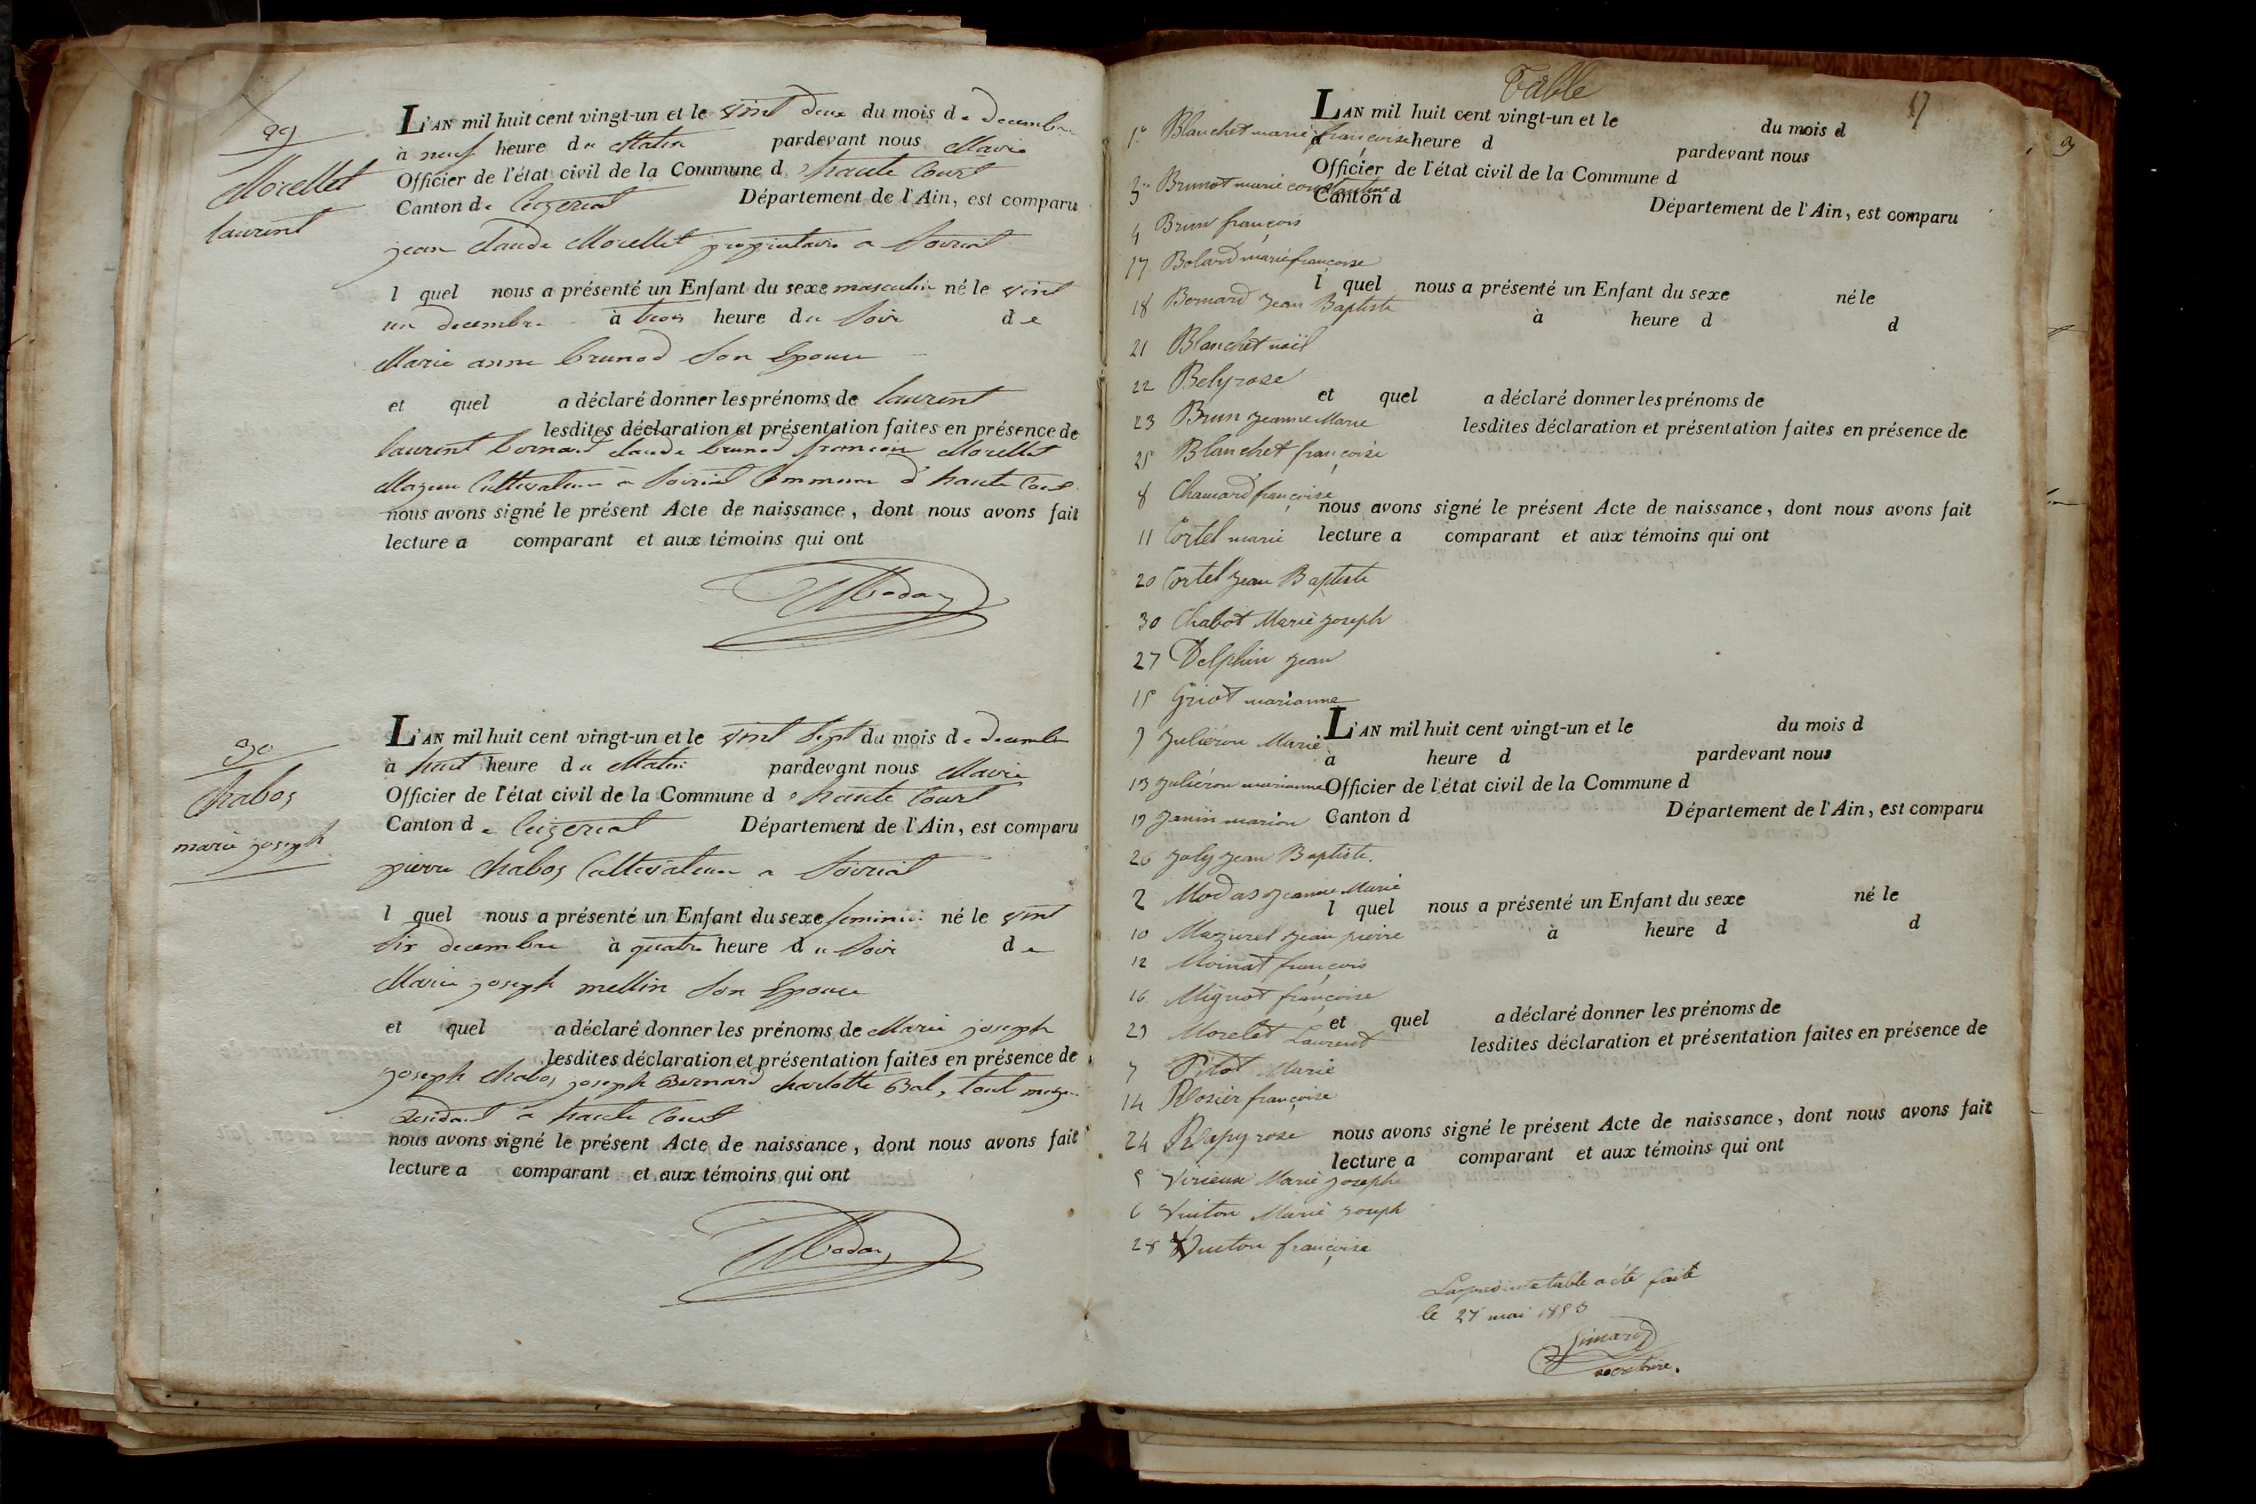 29
Morellet
laurent
L'AN mil huit cent vingt-un et le vint deux du mois de decembre
à neuf heure du Matin pardevant nous Maire
Officier de l'état civil de la Commune d haute Court
Canton de Ceizeriat Département de l'Ain, est comparu
jean Claude Morellet propriataire a Soiriat
l quel nous a présenté un Enfant du sexe masculin né le vint
un decembre à trois heure du Soir de
Marie anne brunod Son Epouse
et quel a déclaré donner les prénoms de laurent
lesdites déclaration et présentation faites en présence de
laurent bornard claude brunod francois Morellet
Majeur Cultivateur a Soiriat Commune d'haute Court
nous avons signé le présent Acte de naissance, dont nous avons fait
lecture a comparant et aux témoins qui ont
Modas
30
Chabos
marie joseph
L'AN mil huit cent vingt-un et le vint Sept du mois de decembre
à huit heure du Matin pardevant nous Maire
Officier de l'état civil de la Commune d haute Court
Canton de Ceizeriat Département de l'Ain, est comparu
pierre Chabos Cultivateur a Soiriat
l quel nous a présenté un Enfant du sexe feminin né le vint
Six decembre à quatre heure du Soir de
Marie joseph mellin Son Epouse
et quel a déclaré donner les prénoms de Marie joseph
lesdites déclaration et présentation faites en présence de
joseph Chabos joseph Bernard charlotte Bal, tout majeur
Residant a haute Court
nous avons signé le présent Acte de naissance, dont nous avons fait
lecture a comparant et aux témoins qui ont
Modas
Table
17
L'AN mil huit cent vingt-un et le du mois d
à heure d pardevant nous
Officier de l'état civil de la Commune d
Canton d Département de l'Ain, est comparu
l quel nous a présenté un Enfant du sexe né le
à heure d d
et quel a déclaré donner les prénoms de
lesdites déclaration et présentation faites en présence de
nous avons signé le présent Acte de naissance, dont nous avons fait
lecture a comparant et aux témoins qui ont
L'AN mil huit cent vingt-un et le du mois d
à heure d pardevant nous
Officier de l'état civil de la Commune d
Canton d Département de l'Ain, est comparu
l quel nous a présenté un Enfant du sexe né le
à heure d d
et quel a déclaré donner les prénoms de
lesdites déclaration et présentation faites en présence de
nous avons signé le présent Acte de naissance, dont nous avons fait
lecture a comparant et aux témoins qui ont
1° Blanchet marie françoise
3 Brunot marie constantine
4 Brun françois
17 Bolard marie françoise
18 Bornard Jean Baptiste
21 Blanchet noël
22 Bely rose
23 Brun Jeanne Marie
25 Blanchet françoise
8 Chanard françoise
11 Cortel marie
20 Cortel Jean Baptiste
30 Chabot Marie Joseph
27 Delphin Jean
15 Griot marianne
9 Juliéron Marie
13 Juliéron marianne
19 Janin marion
26 Joly Jean Baptiste.
2 Modas Jeanne Marie
10 Mazurel Jean pierre
12 Moinat françois
16 Mignot françoise
29 Morelet Laurent
7 Pitot Marie
14 Rosier françoise
24 Rapy rose
5 Virieux Marie Joseph
6 Vuiton Marie Joseph
28 Vuiton françoise
La présente table a été faite
le 27 mai 1853
secretaire.